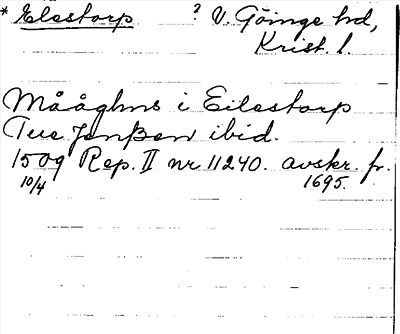 * Elestorp ? V. Göinge hd,
Krist. l.
Mååghns i Eilestorp
Tue Jenßen ibid.
1509 Rep. II nr 11240. avskr. fr.
10/4 1695.